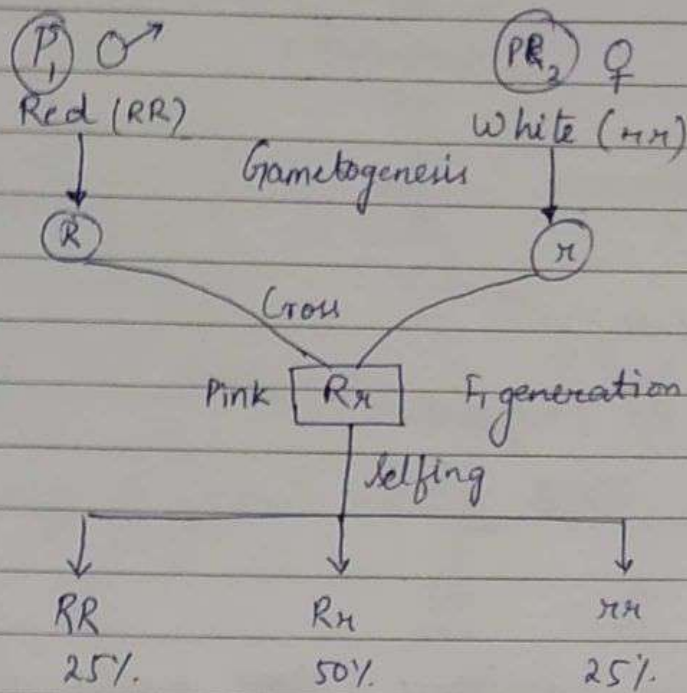 P1 ♂ PR2 ♀
Red (RR) White (rr)
Gametogenesis
R r
Cross
Pink Rr F1 generation
Selfing
RR Rr rr
25%. 50%. 25%.